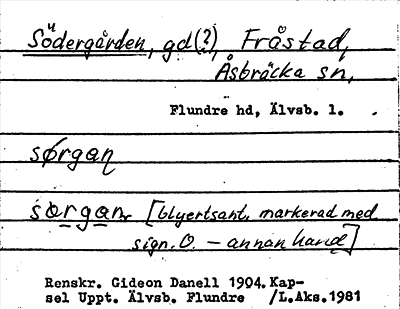 Södergården, gd(?), Fråstad,
Åsbräcka sn,
Flundre hd, Älvsb. l.
sørgan
sørgan [blyertsant. markerad med
sign. O. – annan hand]
Renskr. Gideon Danell 1904. Kap-
sel Uppt. Älvsb. Flundre /L.Aks.1981